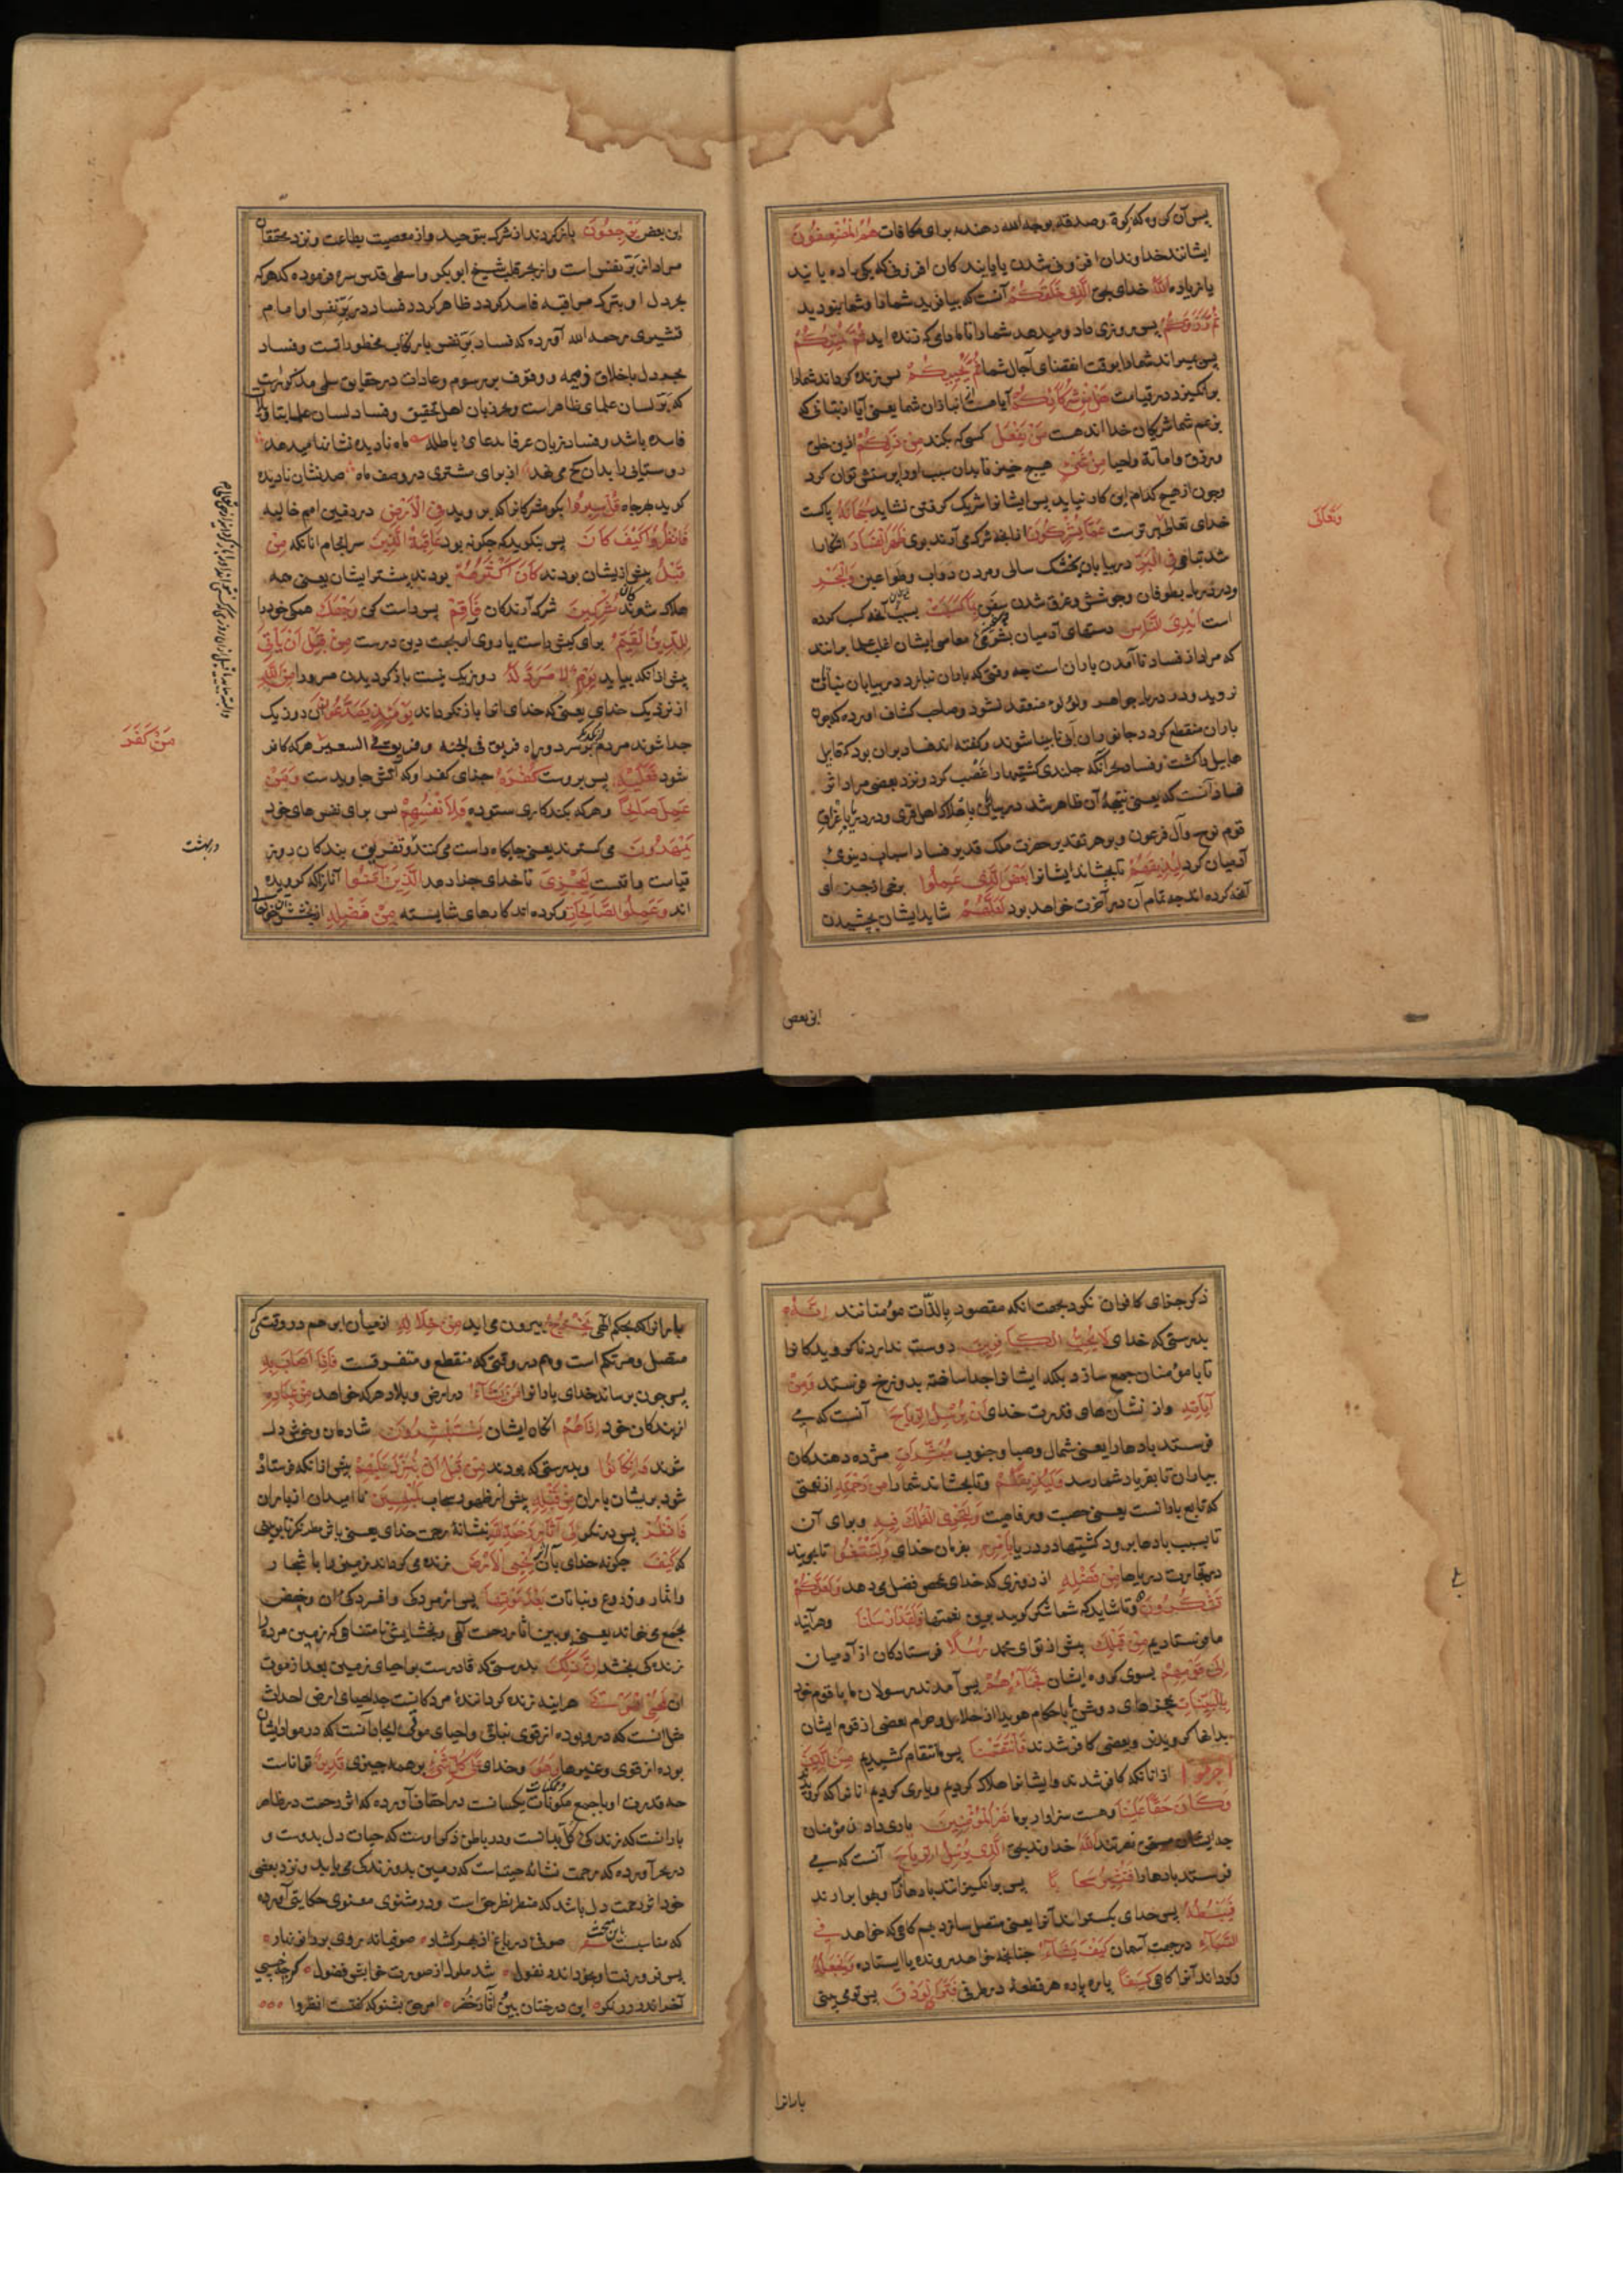 پس آن کروه که زکوة و صدقه بوجه الله دهنده برای مکافات هُمُ الْمُضْعِفُونَ
ایشانند خداوندان افزونی شدن یا یابندکان افزونی که یکی را ده یابند
یا زیاده اللهُ خدای بحق الَّذِي خَلَقَكُمْ آنست که بیافرید شما را و شما نبودید
ثُمَّ رَزَقَكُمْ پس روزی داد و میدهد شما را تا مادامی که زنده اید ثُمَّ يُمِيتُكُمْ
پس میراند شما را بوقت انقضای آجال شما ثُمَّ يُحْيِيكُمْ پس زنده کرداند شما را
برانکیزد در قیامت هَلْ مِنْ شُرَكَائِكُمْ آیا هست از انبازان شما یعنی آیا از بتان که
بزعم شما شریکان خدا اند هست مَنْ يَفْعَلُ کسی که بکند مِنْ ذَلِكُمْ ازین خلق
و رزق و اماتة و احیا مِنْ شَيْءٍ هیچ چیز تا بدان سبب او را پرستش توان کرد
و چون از هیچ کدام این کار نیاید پس ایشانرا شریک کرفتن نشاید سُبْحَانَهُ پاکست
خدای تعالی و برترست عَمَّا يُشْرِكُونَ از انچه شرک می آرند بوی ظَهَرَ الْفَسَادُ آشکارا
شد تباهی فِي الْبَرِّ در بیابان بخشک سالی و مردن دواب و طواعین وَالْبَحْرِ
و در دریا بطوفان و جوشش و غرق شدن سفن بِمَا كَسَبَتْ بسبب آنچه کسب کرده
است أَيْدِي النَّاسِ دستهای آدمیان بشومی معاصی ایشان اغلب علما برانند
که مراد از فساد نا آمدن باران است چه وقتی که باران نبارد در بیابان نباتی
نروید و در دریا جواهر و لؤلؤ منعقد نشود و صاحب کشاف آورده که چون
باران منقطع کردد جانوران آبی نابینا شوند و کفته اند فساد بران بود که قابیل
هابیل را کشت و فساد بحر آنکه جلندی کشتیها را غصب کرد و نزد بعضی مراد اثر
فساد آنست که یعنی نتیجهٔ آن ظاهر شد در بیابانی باهلاک اهل قری و در دریا باغراق
قوم نوح و آل فرعون و بر هر تقدیر حضرت ملک قدیر فساد اسباب دینوی
آدمیان کرد لِيُذِيقَهُمْ تا بچشاند ایشانرا بَعْضَ الَّذِي عَمِلُوا برخی از جزای
آنچه کرده اند چه تمام آن در آخرت خواهد بود لَعَلَّهُمْ شاید ایشان بچشیدن
وَتَعَالَى
این بعض
این بعض يَرْجِعُونَ باز کردند از شرک بتوحید و از معصیت بطاعت و نزد محققان
مراد از بر نفس است و از بحر قلب شیخ ابو بکر واسطی قدس سره فرموده که هر که
بحر دل او بترک مراقبه فاسد کردد ظاهر کردد فساد در بر نفس او امام
قشیری رحمه الله آورده که فساد بر نفس بارتکاب محظوراتست و فساد
بحر دل باخلاق ذمیمه و وقوف بر رسوم و عادات در حقایق سلمی مذکورست
که بر لسان علمای ظاهر است و بحر زبان اهل تحقیق و فساد لسان علما بتاویلات
فاسده باشد و فساد زبان عرفا بدعای باطله ماه نادیده نشانها میدهد
روستایی را بدان کج می نهد از برای مشتری در وصف ماه صد نشان نادیده
کوید بهر جاه قُلْ سِيرُوا بکو مشرکانرا که بروید فِي الْأَرْضِ در زمین امم خالیه
فَانْظُرُوا كَيْفَ كَانَ پس بنکرید که چکونه بود عَاقِبَةُ الَّذِينَ سرانجام انانکه مِنْ
قَبْلُ پیش ازیشان بودند كَانَ أَكْثَرُهُمْ بودند بیشتر ایشان یعنی همه
هلاک شوندکان مُشْرِكِينَ شرک آرندکان فَأَقِمْ پس راست کن وَجْهَكَ همکی خود را
لِلدِّينِ الْقَيِّمِ برای کیش راست یا روی آر بجهت دین درست مِنْ قَبْلِ أَنْ يَأْتِيَ
پیش از انکه بیاید يَوْمٌ لَا مَرَدَّ لَهُ روزیکه نیست باز کردیدن مر و را مِنَ اللهِ
از نزدیک خدای یعنی که خدای انرا باز نکرداند يَوْمَئِذٍ يَصَّدَّعُونَ در روزیکه
جدا شوند مردم از یکدکر بدو راه فریق فی الجنه و فریق فی السعیر هر که کافر
شود فَعَلَيْهِ پس بروست كُفْرُهُ جزای کفر او که آتش جاویدست وَمَنْ
عَمِلَ صَالِحًا و هر که بکند کاری ستوده فَلِأَنْفُسِهِمْ پس برای نفس های خود
يَمْهَدُونَ می کسترند یعنی جایکاه راست می کنند و تفریق بندکان در روز
قیامت واقعست لِيَجْزِيَ تا خدای جزا دهد الَّذِينَ آمَنُوا آنانرا که کرویده
اند وَعَمِلُوا الصَّالِحَاتِ و کرده اند کارهای شایسته مِنْ فَضْلِهِ از بخشش خود
مَنْ كَفَرَ
در بهشت
ذکر جزای کافران نکرد بجهت انکه مقصود بالذات مؤمنانند إِنَّهُ
بدرستی که خدای لَا يُحِبُّ الْكَافِرِينَ دوست ندارد ناکرویدکانرا
تا با مؤمنان جمع سازد بلکه ایشانرا جدا ساخته بدوزخ فرستد وَمِنْ
آيَاتِهِ و از نشان های قدرت خدای أَنْ يُرْسِلَ الرِّيَاحَ آنست که می
فرستد بادها را یعنی شمال و صبا و جنوب مُبَشِّرَاتٍ مژده دهندکان
بباران تا بفریاد شما رسد وَلِيُذِيقَكُمْ و تا بچشاند شما را مِنْ رَحْمَتِهِ از نعمتی
که تابع بارانست یعنی خصب و رفاهیت وَلِتَجْرِيَ الْفُلْكُ فِيهِ و برای آن
تا بسبب بادها برود کشتیها در دریا بِأَمْرِهِ بفرمان خدای وَلِتَبْتَغُوا تا بجویند
در تجارت دریاها مِنْ فَضْلِهِ از روزی که خدای محض فضل می دهد وَلَعَلَّكُمْ
تَشْكُرُونَ و تا شاید که شما شکر کویید برین نعمتها وَلَقَدْ أَرْسَلْنَا و هر آینه
ما فرستادیم مِنْ قَبْلِكَ پیش از تو ای محمد رُسُلًا فرستادکان از آدمیان
إِلَى قَوْمِهِمْ بسوی کروه ایشان فَجَاءُوهُمْ پس آمدند رسولان ما با قوم خود
بِالْبَيِّنَاتِ بمعجزهای روشن یا باحکام هویدا از حلال و حرام بعضی از قوم ایشان
بدانها کرویدند و بعضی کافر شدند فَانْتَقَمْنَا پس ما انتقام کشیدیم مِنَ الَّذِينَ
أَجْرَمُوا از انانکه کافر شدند و ایشانرا هلاک کردیم و یاری کردیم انانرا که کرویدند
وَكَانَ حَقًّا عَلَيْنَا و هست سزاوار بر ما نَصْرُ الْمُؤْمِنِينَ یاری دادن مؤمنان
چه ایشان مستحق نصرتند اللهُ خداوند بحق الَّذِي يُرْسِلُ الرِّيَاحَ آنست که می
فرستد بادها را فَتُثِيرُ سَحَابًا پس برانکیزانند بادها ابر را و بهوا برارند
فَيَبْسُطُهُ پس خدای بکستراند آنرا یعنی متصل سازد بهم کاهی که خواهد فِي
السَّمَاءِ در جهت آسمان كَيْفَ يَشَاءُ چنانچه خواهد رونده یا ایستاده وَيَجْعَلُهُ
و کرداند آنرا کاهی كِسَفًا پاره پاره هر قطعهٔ در طرفی فَتَرَى الْوَدْقَ پس تو می بینی
بارانرا
بارانرا که بحکم الهی يَخْرُجُ بیرون می اید مِنْ خِلَالِهِ از میان ابر هم در وقتی که
متصل و متراکم است و هم در وقتی که منقطع و متفرقست فَإِذَا أَصَابَ بِهِ
پس چون برساند خدای بارانرا مَنْ يَشَاءُ در اراضی و بلاد هر که خواهد مِنْ عِبَادِهِ
از بندکان خود إِذَا هُمْ انکاه ایشان يَسْتَبْشِرُونَ شادمان و خوش دل
شوند وَإِنْ كَانُوا و بدرستی که بودند مِنْ قَبْلِ أَنْ يُنَزَّلَ عَلَيْهِمْ پیش از انکه فرستاده
شود بر یشان باران مِنْ قَبْلِهِ پیش از ظهور سحاب لَمُبْلِسِينَ نا امیدان از باران
فَانْظُرْ پس در نکر إِلَى آثَارِ رَحْمَتِ اللهِ نشانهٔ رحمت خدای یعنی باثر مطر نکر تا به بینی
که كَيْفَ چکونه خدای بآن يُحْيِي الْأَرْضَ زنده می کرداند زمین را باشجار
و اثمار و زروع و نباتات بَعْدَ مَوْتِهَا پس از مردکی و افسردکی ان و حفص
بجمع می خواند یعنی به بین آثار رحمت الهی و بخشایش نامتناهی که زمین مرده را
زندکی بخشد إِنَّ ذَلِكَ بدرستی که قادرست بر احیای زمین بعد از موت
ان لَمُحْيِي الْمَوْتَى هر اینه زنده کردانندهٔ مردکانست چه احیای ارض احداث
مثل انست که درو بوده از قوی نباتی و احیای موتی ایجاد آنست که در مواد ایشان
بوده از قوی و غیرها وَهُوَ و خدای عَلَى كُلِّ شَيْءٍ بر همه چیزی قَدِيرٌ تواناست
چه قدرت او با جمیع مکونات یکسانست در احقاف آورده که اثر رحمت در ظاهر
بارانست که زندکی کل بدانست و در باطن ذکر اوست که حیات دل بدوست و
در بحر آورده که رحمت نشانه محبتست که زمین بدو زندکی می یابد و نزد بعضی
خود اثر رحمت دل باشد که منظر نظر حق است و در مثنوی معنوی حکایتی آورده
که مناسبت باین مبحث صوفی در باغ از بهر کشاد صوفیانه روی بر زانو نهاد
پس فرو رفت او بخود اندر نغول شد ملول از صورت خوابش فضول که چه خسپی
آخر اندر رز نکر این درختان بین و آثار خضر امر حق بشنو که کفتست انظروا